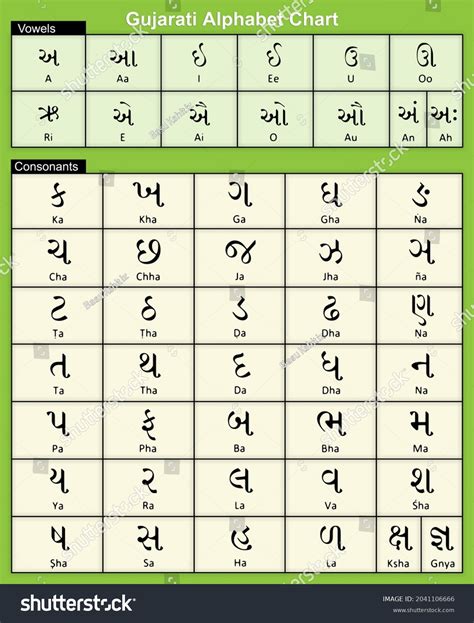 Gujarati Alphabet Chart
Vowels
અ આ ઇ ઈ ઉ ઊ
A Aa I Ee U Oo
ઋ એ ઐ ઓ ઔ અં અઃ
Ri E Ai O Au An Ah
Consonants
ક ખ ગ ઘ ઙ
Ka Kha Ga Gha Na
ચ છ જ ઝ ઞ
Cha Chha Ja Jha ña
ટ ઠ ડ ઢ ણ
Ṭa Ṭha Ḍa Ḍha Ṇa
ત થ દ ધ ન
Ta Tha Da Dha Na
પ ફ બ ભ મ
Pa Pha Ba Bha Ma
ય ર લ વ શ
Ya Ra La Va Śha
ષ સ હ ળ ક્ષ જ્ઞ
Ṣha Sa Ha La Ksha Gnya
shutterstock
IMAGE ID: 2041106666
www.shutterstock.com